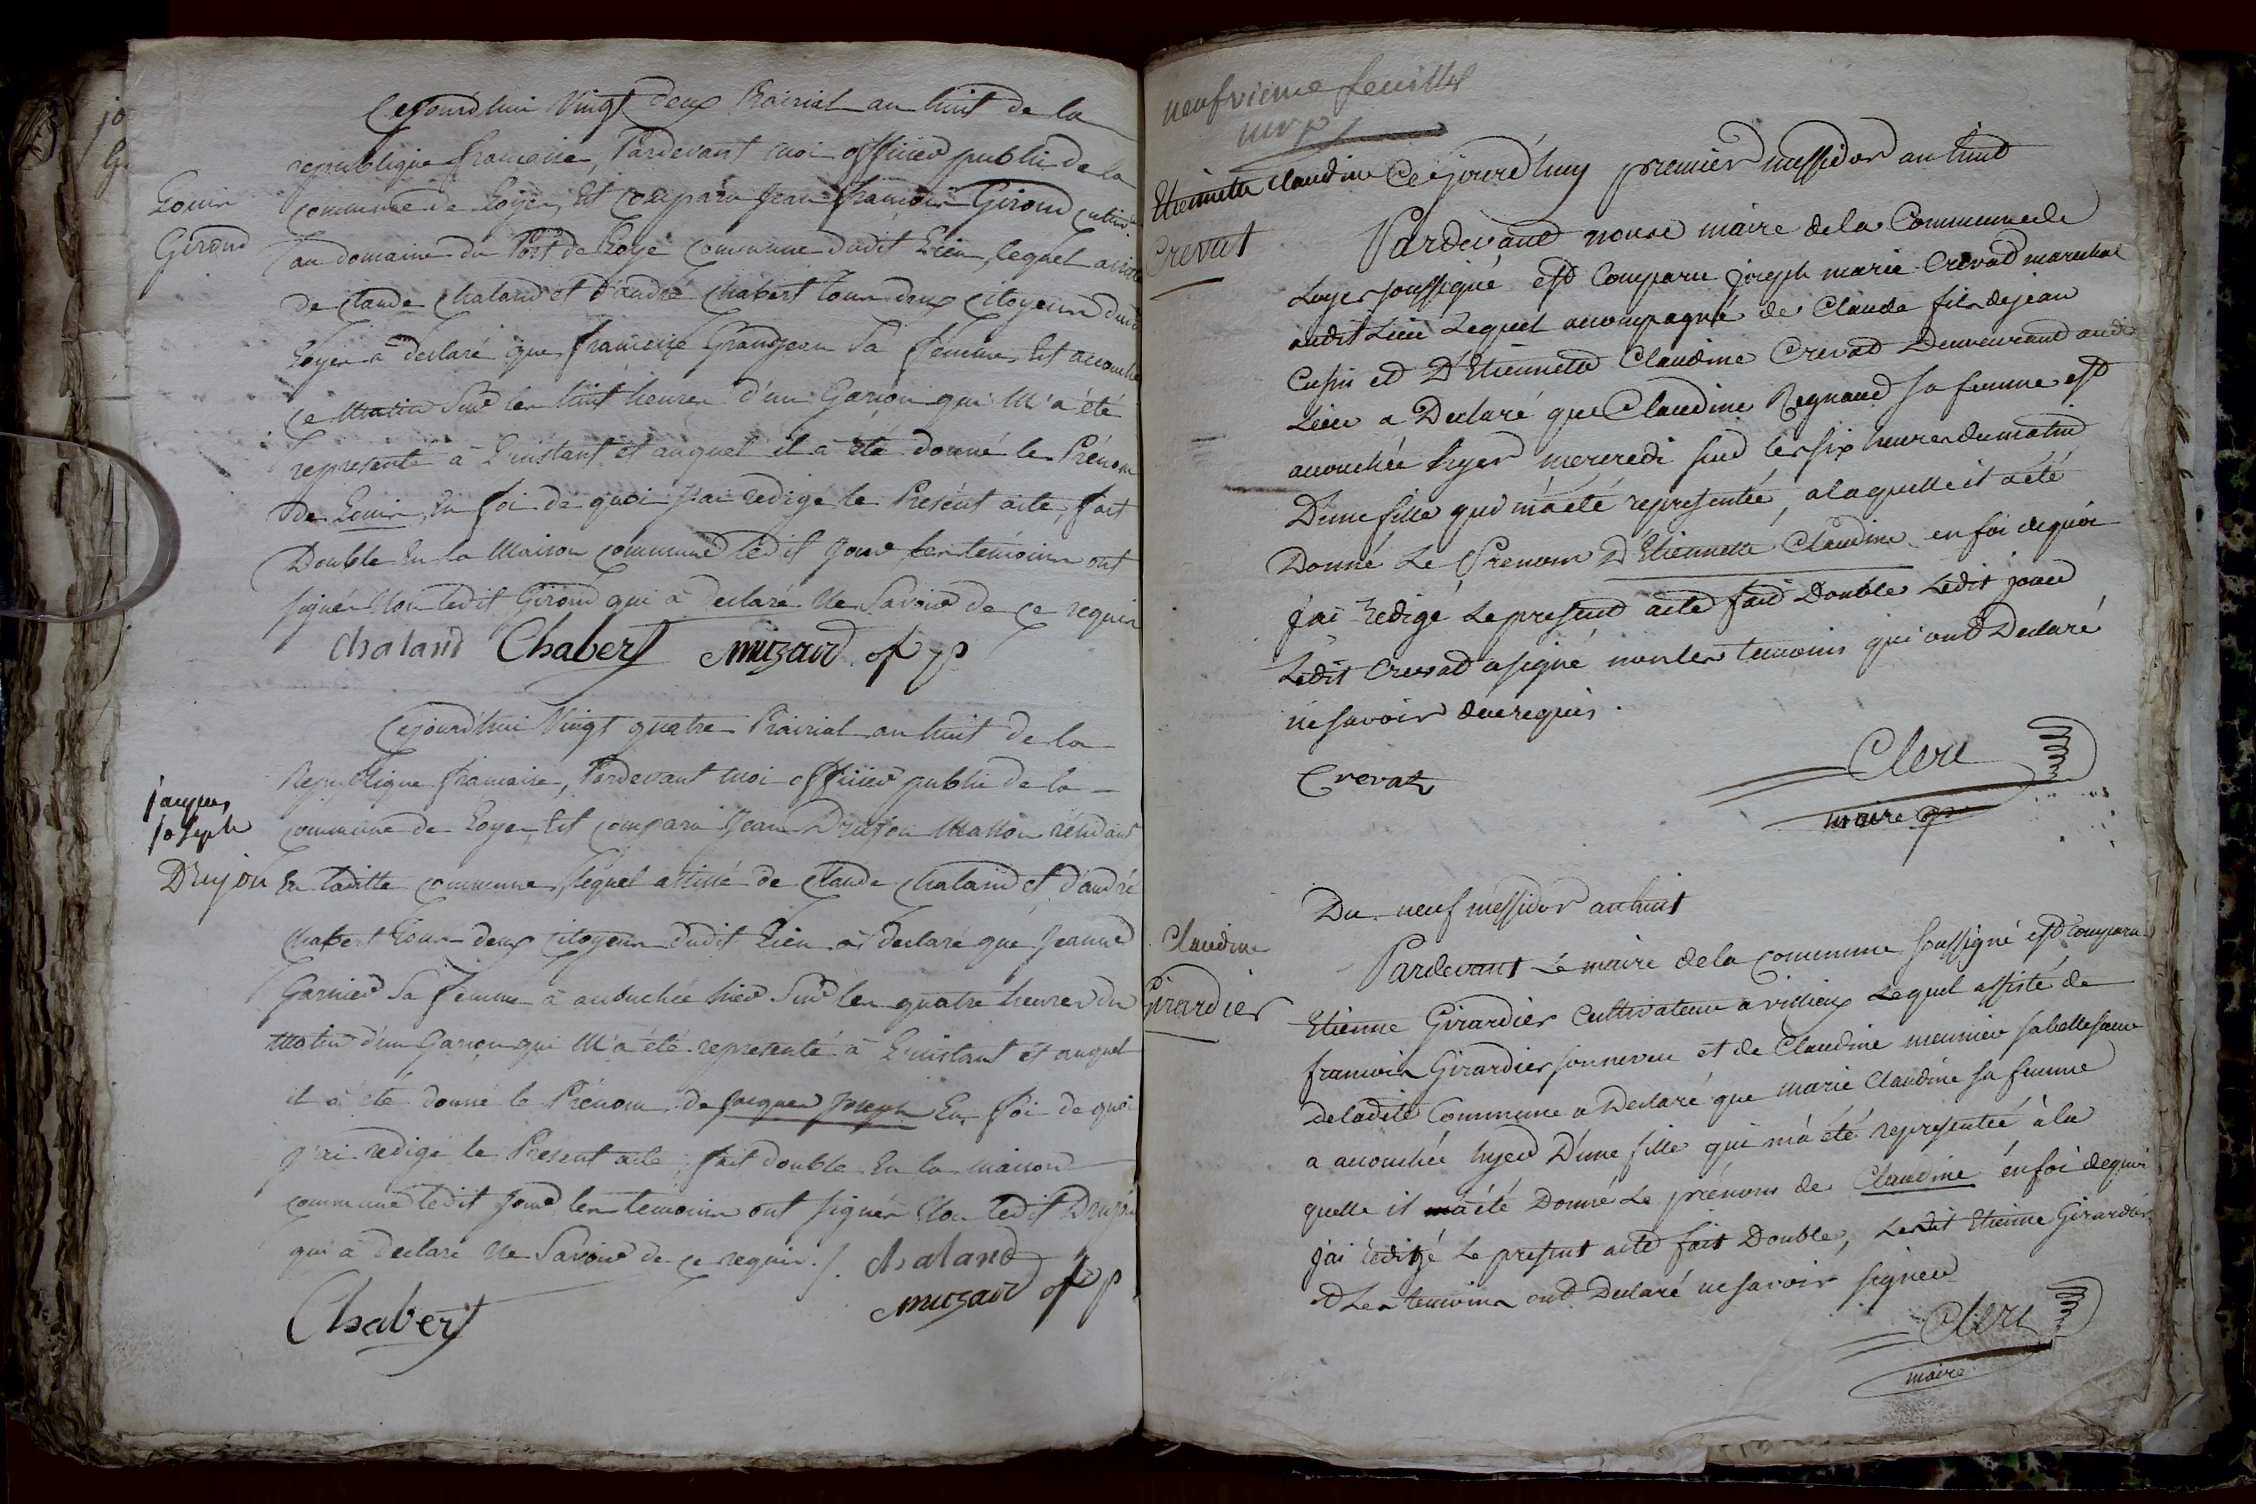 Louis
Giroud
Cejourd'hui Vingt deux Prairial an huit de la
republique francaise, Pardevant moi officier public de la
commune de Loyes, Est comparu Jean François Giroud cultiv.
au domaine du Port de Loye commune dudit Lieu, lequel assisté
de Claude Chaland et d'andré Chabert tous deux Citoyens dudit
Loyes a declaré que françoise Grandjean Sa femme, Est accouchée
ce Matin Sur les huit heures d'un Garçon qui M'a été
representé à L'instant et auquel il a été donné le Prénom
de Louis, En foi de quoi j'ai redigé le Présent acte, fait
Double En la Maison commune ledit Jour les temoins ont
signés Non ledit Giroud qui à declaré Ne Savoir de ce requis
Chaland Chabert Muzard of p
jacques
joseph
Drujon
Cejourd'hui Vingt quatre Prairial an huit de la
Republique francaise, Pardevant moi officier public de la
commune de Loyes, Est comparu Jean Drujon Masson résidant
En laditte commune, lequel assisté de Claude Chaland et d'andré
Chabert tous deux Citoyens dudit Lieu à declaré que Jeanne
Garnier Sa femme à accouchée hier Sur les quatre heures du
Matin d'un Garçon qui M'a été representé à L'instant et auquel
il à été donné le Prénom de Jacques Joseph En foi de quoi
j'ai redigé le Present acte, fait double En la Maison
commune ledit Jour les temoins ont signés Non ledit Drujon
qui à declaré Ne Savoir de ce requis ./. Chaland
Muzard of p
Chabert
neufvieme feuillet
Etiennette Claudine
Crevat
Cejourd'huy premier messidor an huit
Pardevant nous maire de la Commune de
Loyes soussigné est Comparu joseph marie Crevat marechal
audit Lieu Lequel accompagné de Claude fils de jean
Cusin et D'Etiennette Claudine Crevat Demeurant audit
Lieu a Declaré que Claudine Regnaud sa femme est
accouchée hyer mercredi sur les six heures du matin
D'une fille qui m'a été representée, a laquelle il a été
Donné Le Prenom D'Etiennette Claudine en foi de quoi
j'ai Redigé Le present acte fait Double Ledit jour
Ledit Crevat a signé non les temoins qui ont Declaré
ne savoir de ce requis.
Crevat
Clerc
maire
Claudine
Girardier
Du neuf messidor an huit
Pardevant Le maire de la commune soussigné est comparu
Etienne Girardier Cultivateur a villieux Lequel assisté de
francois Girardier son neveu et de Claudine meunier sa belle soeur
de ladite Commune a Declaré que marie Claudine sa femme
a accouchée hyer D'une fille qui m'a été representée à la
quelle il a été Donné Le prénom de Claudine en foi de quoi
j'ai redigé Le present acte fait Double, Ledit Etienne Girardier
et Les temoins ont Declaré ne savoir signer
Clerc
maire